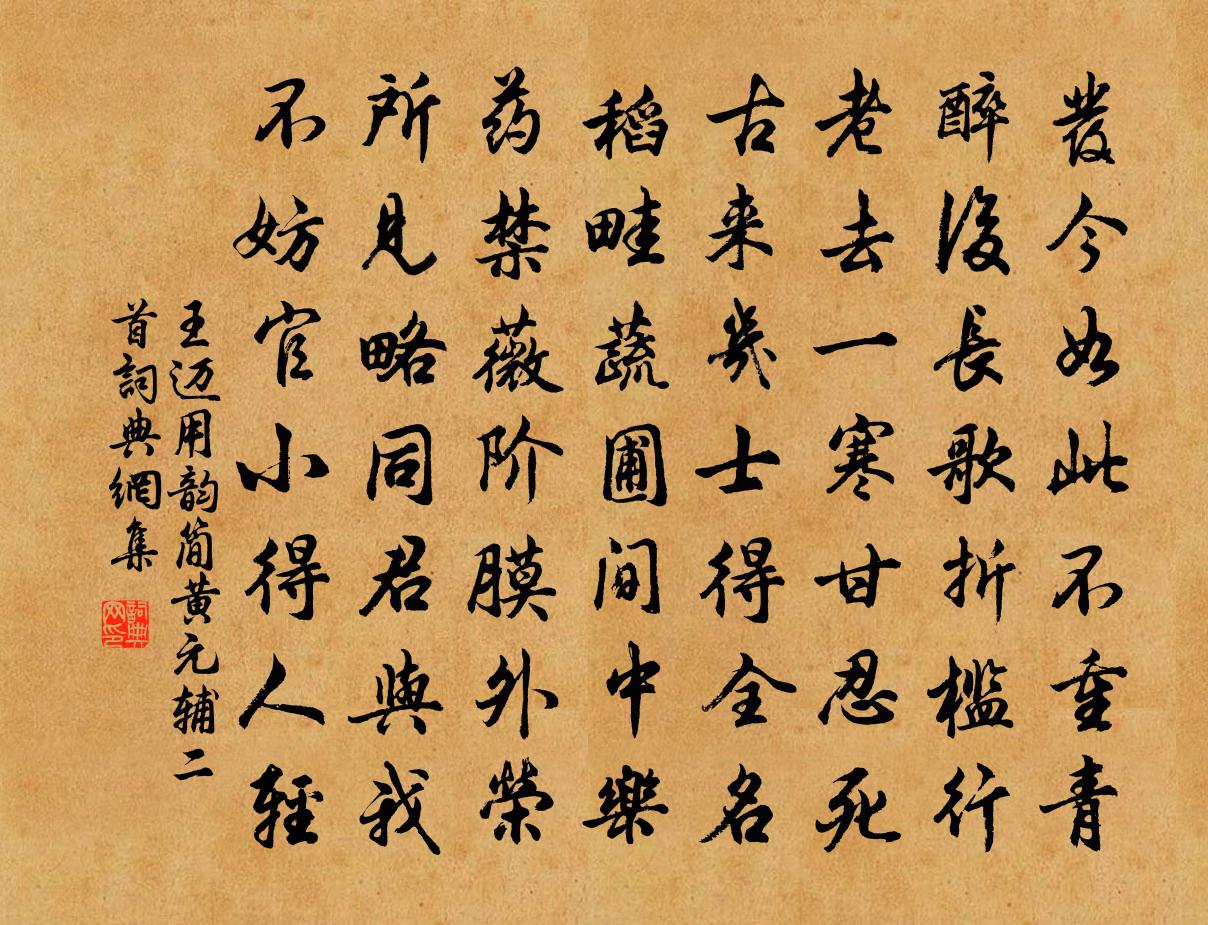 發今如此不重青
醉後長歌折檻行
老去一寒甘忍死
古来幾士得全名
稻畦蔬圃间中樂
药禁薇阶膜外榮
所見略同君與我
不妨官小得人輕
王迈用韵简黄元辅二
首詞典網集
詞典网印